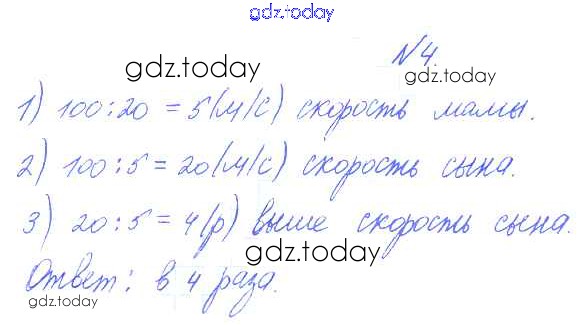 gdz.today
№4.
gdz.today gdz.today
1) 100:20 = 5(м/с) скорость мамы.
2) 100:5 = 20(м/с) скорость сына.
3) 20:5 = 4(р) выше скорость сына.
gdz.today
Ответ: в 4 раза.
gdz.today